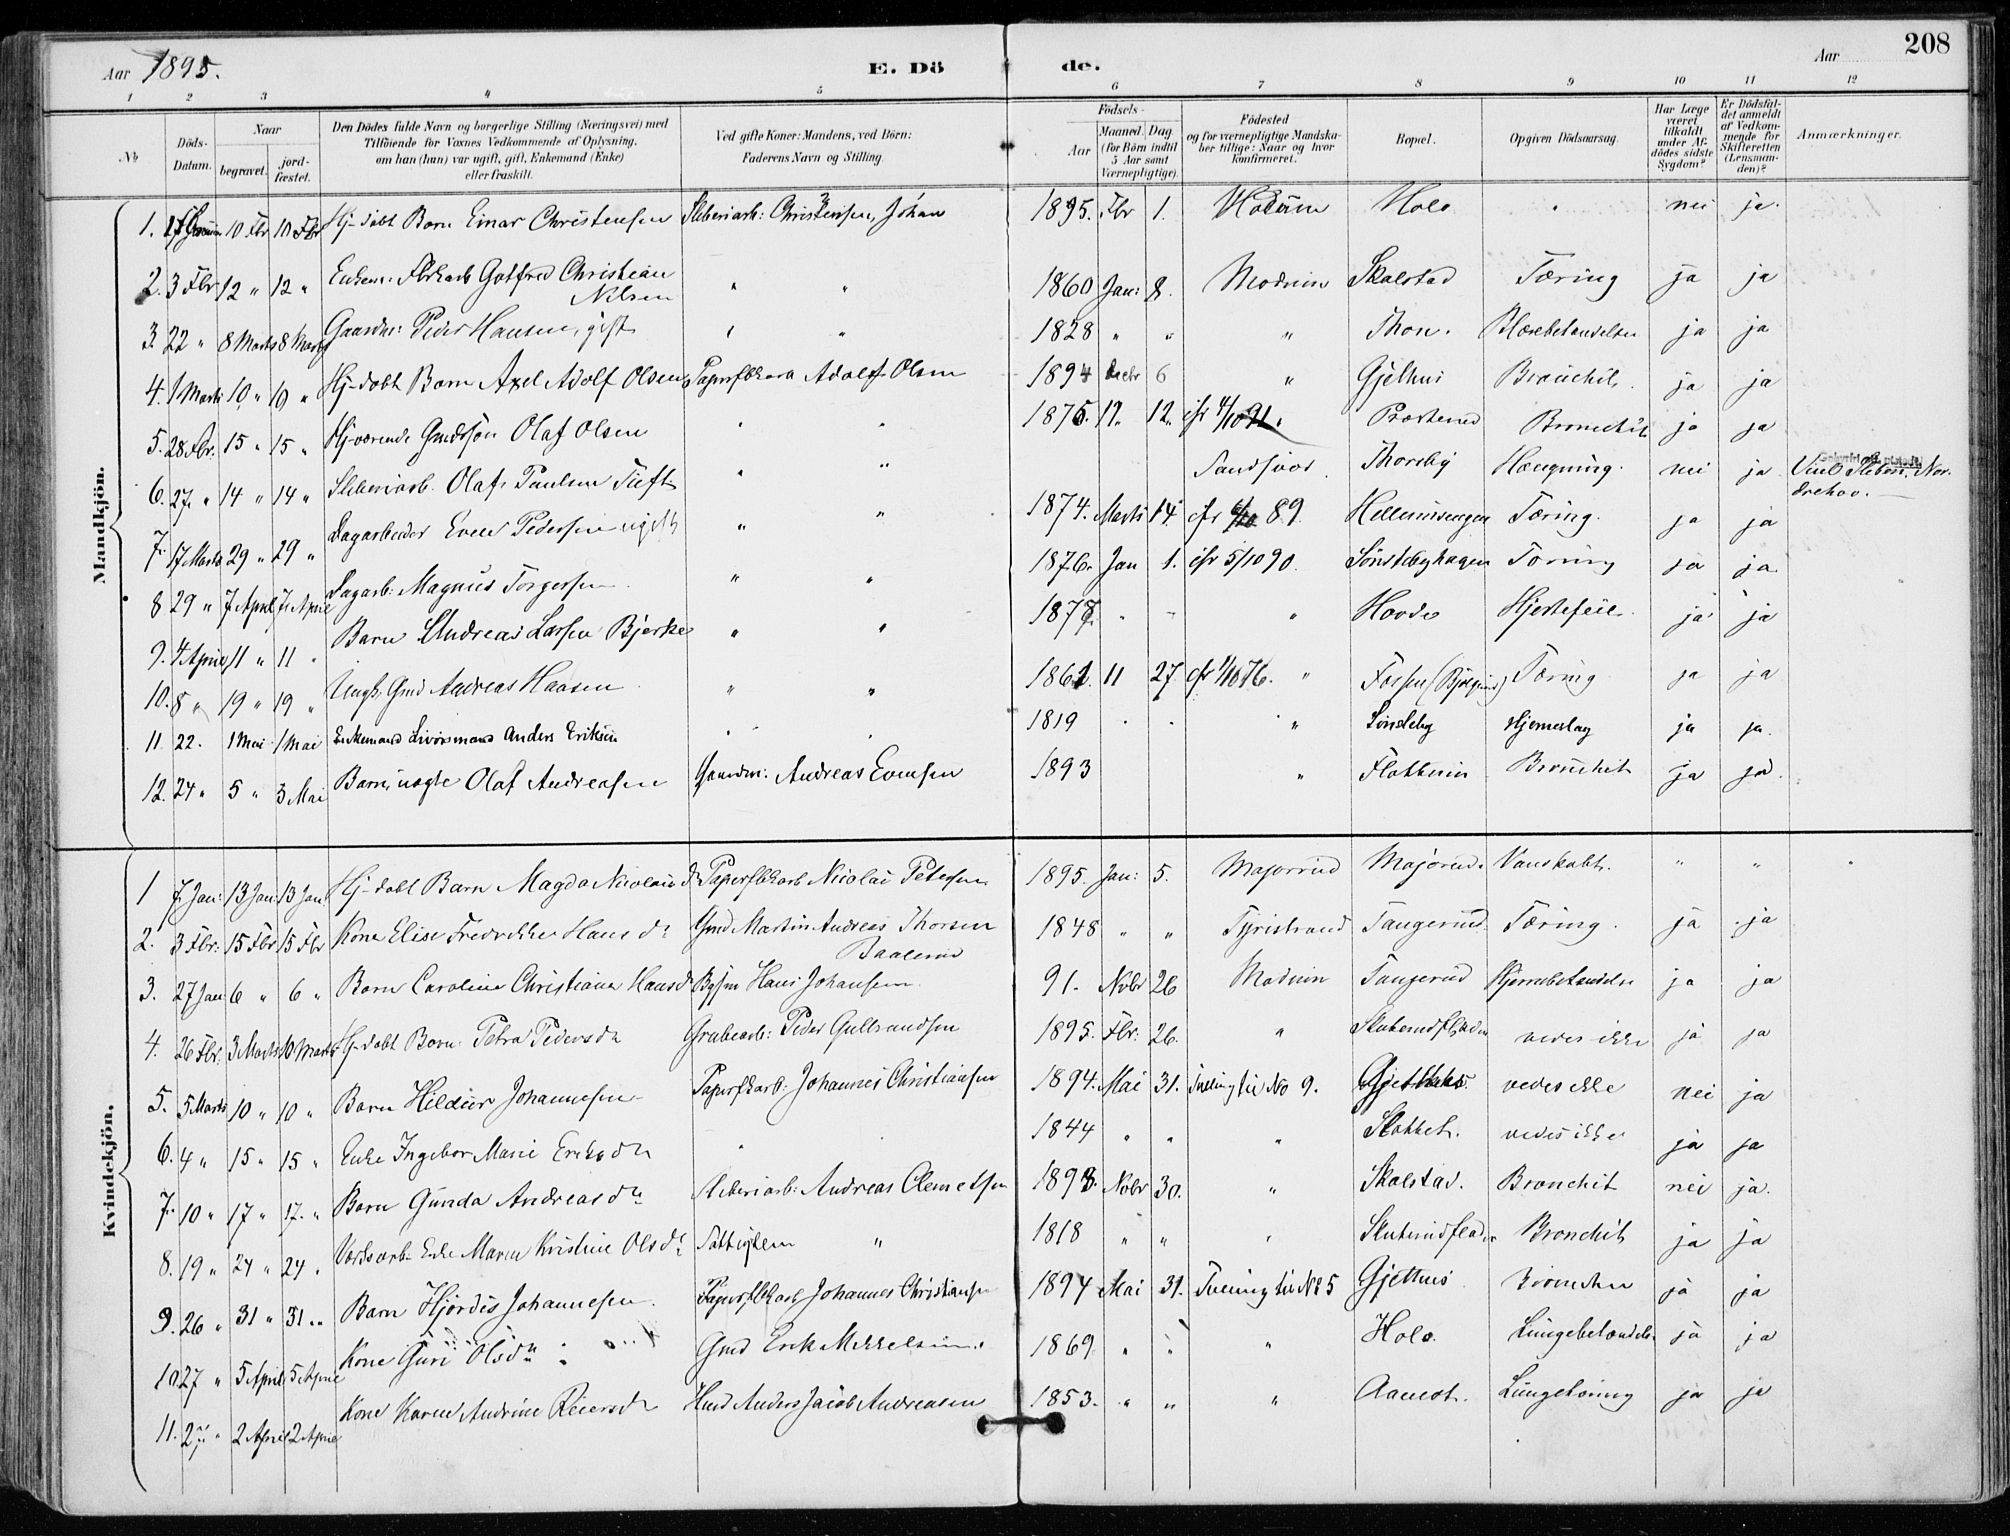 Aar 1895. E. Dö de. Aar 208
1 2 3 4 5 6 7 8 9 10 11 12
No Döds-Datum. Naar begravet. jordfæstet. Den Dödes fulde Navn og borgerlige Stilling (Næringsvei) med Tilföiende for Voxnes Vedkommende af Oplysning, om han (hun) var ugift, gift, Enkemand (Enke) eller fraskilt. Ved gifte Koner: Mandens, ved Börn: Faderens Navn og Stilling. Födsels- Aar Maaned. Dag (for Börn indtil 5 Aar samt Værnepligtige). Födested og for værnepligtige Mandskaber tillige: Naar og hvor konfirmeret. Bopæl. Opgiven Dödsaarsag. Har Læge været tilkaldt under Afdödes sidste Sygdom? Er Dödsfaldet anmeldt af Vedkommende for Skifteretten (Lensmanden)? Anmærkninger.
Mandkjön.
1. 10 Fbr 10 Fbr Hj-döbt Barn Einar Christensen Sliberiarb: Christensen, Johan 1895. Fbr 1. Holo " nei ja.
2. 3 Fbr 12 " 12 " Enkem: Fbrkarb Gotfred Christian Nilsen " " 1860 Jan: 8. Modum Skalstad Tæring ja ja
3. 22 " 8 Marts 8 Marts Gaardm: Peder Hansen, gift " " 1828 " " " Thon. Blærebetændelse ja ja
4. 1 Marts 10 " 10 " Hj-döbt Barn Axel Adolf Olsen Papirfbkarb Adolf Olsen 1894 Decbr 6 " Gjethus Bronchit. ja ja
5. 28 Fbr. 15 " 15 " Hjværende Gmdssön Olaf Olsen " " 1876. 12. cfr 4/10 91. Bronchit ja ja
6. 27. " 14 " 14 " Sliberiarb. Olaf Paulsen Tuft " " Thorsby Hængning. nei ja
7. 17 Marts 29 " 29 " Dagarbeider Even Pedersen ugift " " 1874. Marts 14 cfr 89. Tæring. ja ja
8 29 " 7 April 7. April Dagarb: Magnus Torgersen " " 1876. Jan 1. cfr 5/10 90. Sönstebyhagen Tæring ja ja
9. 4 April 11 " 11 " Barn Andreas Larsen Bjerke " " 1877. " " " Hovde Hjertefeil. ja ja
10. 8 " 19 " 19 " Ungk. Gmd Andreas Hansen " " 1861. 11 27 cfr 1/10 76. " Fossen Tæring ja ja
11. 22. 1 Mai 1 Mai Enkemand Livörsmand Anders Eriksen " " 1819 " " " Sönsteby Hjerneslag ja ja.
12. 24 " 5 " 3 Mai Barn, uægte Olaf Andreasen Gaardm: Andreas Evensen 1893 " Flottum Bronchit ja ja.
Kvindekjön.
1 7 Jan: 13 Jan: 13 Jan. Hj-döbt Barn Magda Nicolais dr Papirfbkarb Nicolai Petersen 1895. Jan: 5. Majorrud Majorud. Vanskabt. " " "
2. 3 Fbr: 15 Fbr 15 Fbr Kone Elise Fredrikke Hansdr Gmd Martin Andreas Thorsen Baalerud 1848 " " Tyristrand Tangerud. Tæring. ja ja
3. 27 Jan 6 " 6 " Barn Caroline Christiane Hansd Hans Johansen 91. Nobr 26 Modum Tangerud Hjernebetændelse ja ja
4. 26 Fbr. 3 Marts 10 Marts Hj-döbt Barn Petra Pedersdr Grubearb: Peder Gulbrandsen 1895. Fbr: 26. " vedes ikke ja ja
5. 5 Marts 10 " 10 " Barn Hildur Johannesen Papirfbkarb: Johannes Christiansen 1894. Mai 31. Tvilling til No 9. Gjethus. vedes ikke nei ja
6. 4 " 15 " 15 " Enke Ingebor Marie Eriksdr " " 1844 " " " Stokket. vedes ikke ja ja
7. 10 " 17 " 17. " Barn Gunda Andreasdr Sliberiarb: Andreas Clemetsen 1893. Nobr 30. " Skalstad. Bronchit nei ja.
8. 19 " 24 " 24 " Enke Maren Kristine Olsdr Fattiglem " 1818 " " " Bronchit ja ja
9. 26 " 31 " 31 " Barn Hjördis Johannesen. Papirfbkarb Johannes Christiansen 1894 Mai 31. Tvilling til No 5 Gjethus ja ja
10. 27 " 5 April 5 April Kone Guri Olsdr Gmd Erik Mikkelsen. 1869. " " " Holo. Lungebetændelse ja ja
11. 2 April 2 April Kone Karen Andrine Reiersdr Hmd Anders Jacob Andreasen 1853. " " " Aamot. Lungetæring ja ja